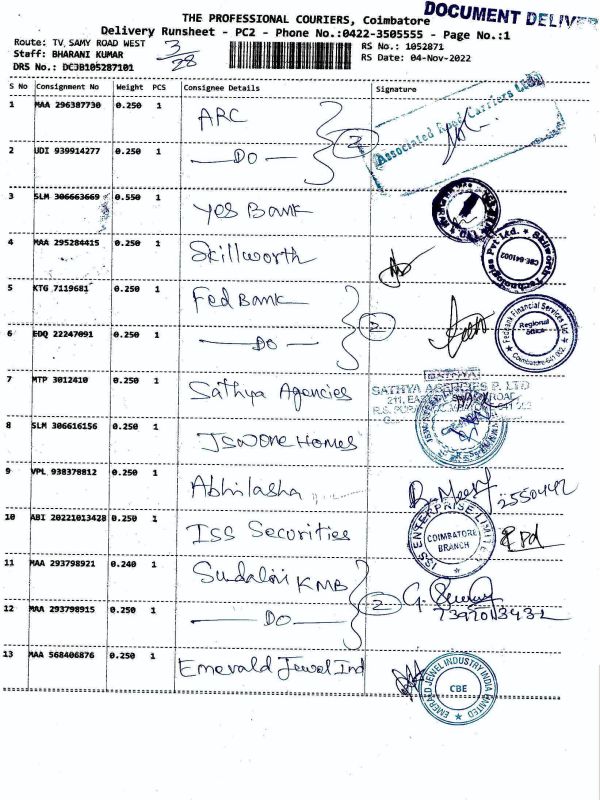 DOCUMENT DELIVER
THE PROFESSIONAL COURIERS, Coimbatore
Delivery Runsheet - PC2 - Phone No.:0422-3505555 - Page No.:1
Route: TV, SAMY ROAD WEST
Staff: BHARANI KUMAR
DRS No.: DC3B105287101
3/28
RS No.: 1052871
RS Date: 04-Nov-2022
S No Consignment No Weight PCS Consignee Details Signature
1 MAA 296387730 0.250 1 ARC
2 Associated Road Carriers Ltd
2 UDI 939914277 0.250 1 —DO—
3 SLM 306663669 0.550 1 Yes Bank
4 MAA 295284415 0.250 1 Skillworth
Skillworth Technologies Pvt Ltd. CBE-641002
5 KTG 7119681 0.250 1 Fed Bank
2 Fedbank Financial Services Ltd Regional Office Coimbatore-641 002.
6 EDQ 22247091 0.250 1 —DO—
7 MTP 3012410 0.250 1 Sathya Agencies
SATHYA AGENCIES P. LTD
8 SLM 306616156 0.250 1 JSW One Homes
9 VPL 938378812 0.250 1 Abhilasha
2550442
10 ABI 20221013428 0.250 1 ISS Securities
ISS ENTERPRISE LIMITED COIMBATORE BRANCH
11 MAA 293798921 0.240 1 Sudalai KMB
2
12 MAA 293798915 0.250 1 —DO—
7397013432
13 MAA 568406876 0.250 1 Emerald Jewel Ind
EMERALD JEWEL INDUSTRY INDIA LIMITED CBE